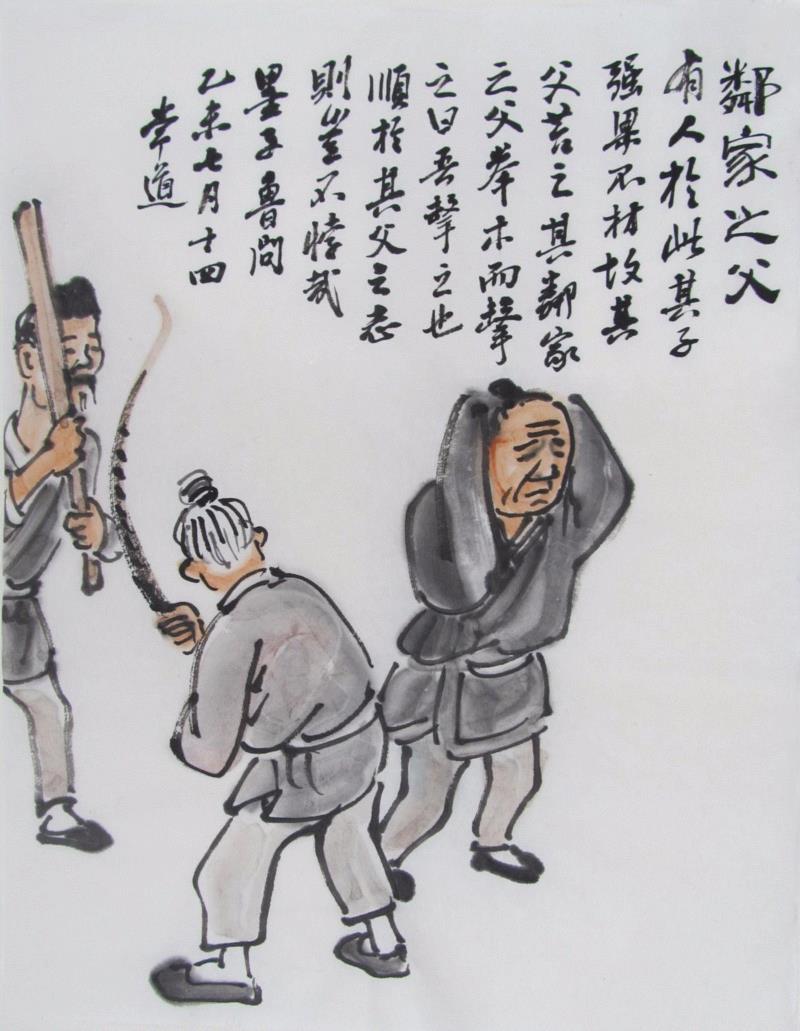 鄰家之父
有人於此其子
强果不材故其
父笞之其鄰家
之父舉木而擊
之曰吾擊之也
順於其父之志
則豈不悖哉
墨子魯問
乙未七月十四
常道